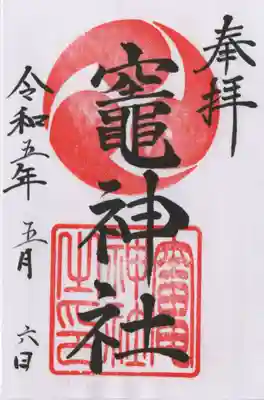 奉拝
竈神社
令和五年
五月
六日